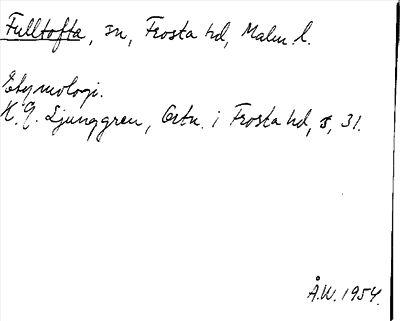 Fulltofta, sn, Frosta hd, Malm. l.
Etymologi.
K. G. Ljunggren, Ortn. i Frosta hd, s, 31.
Å.W. 1954.